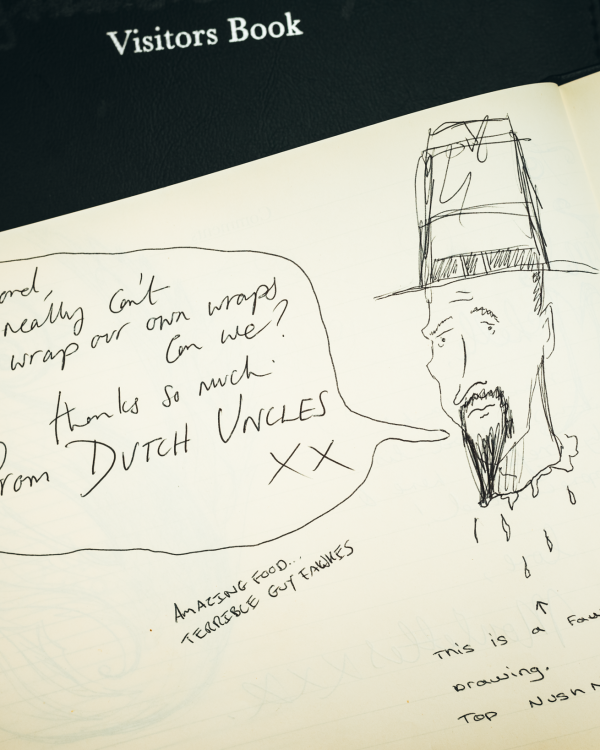 Visitors Book
really Can't
wrap our own wraps
Can we?
thanks so much.
from DUTCH UNCLES
XX
AMAZING FOOD...
TERRIBLE GUY FAWKES
This is a
Drawing.
TOP